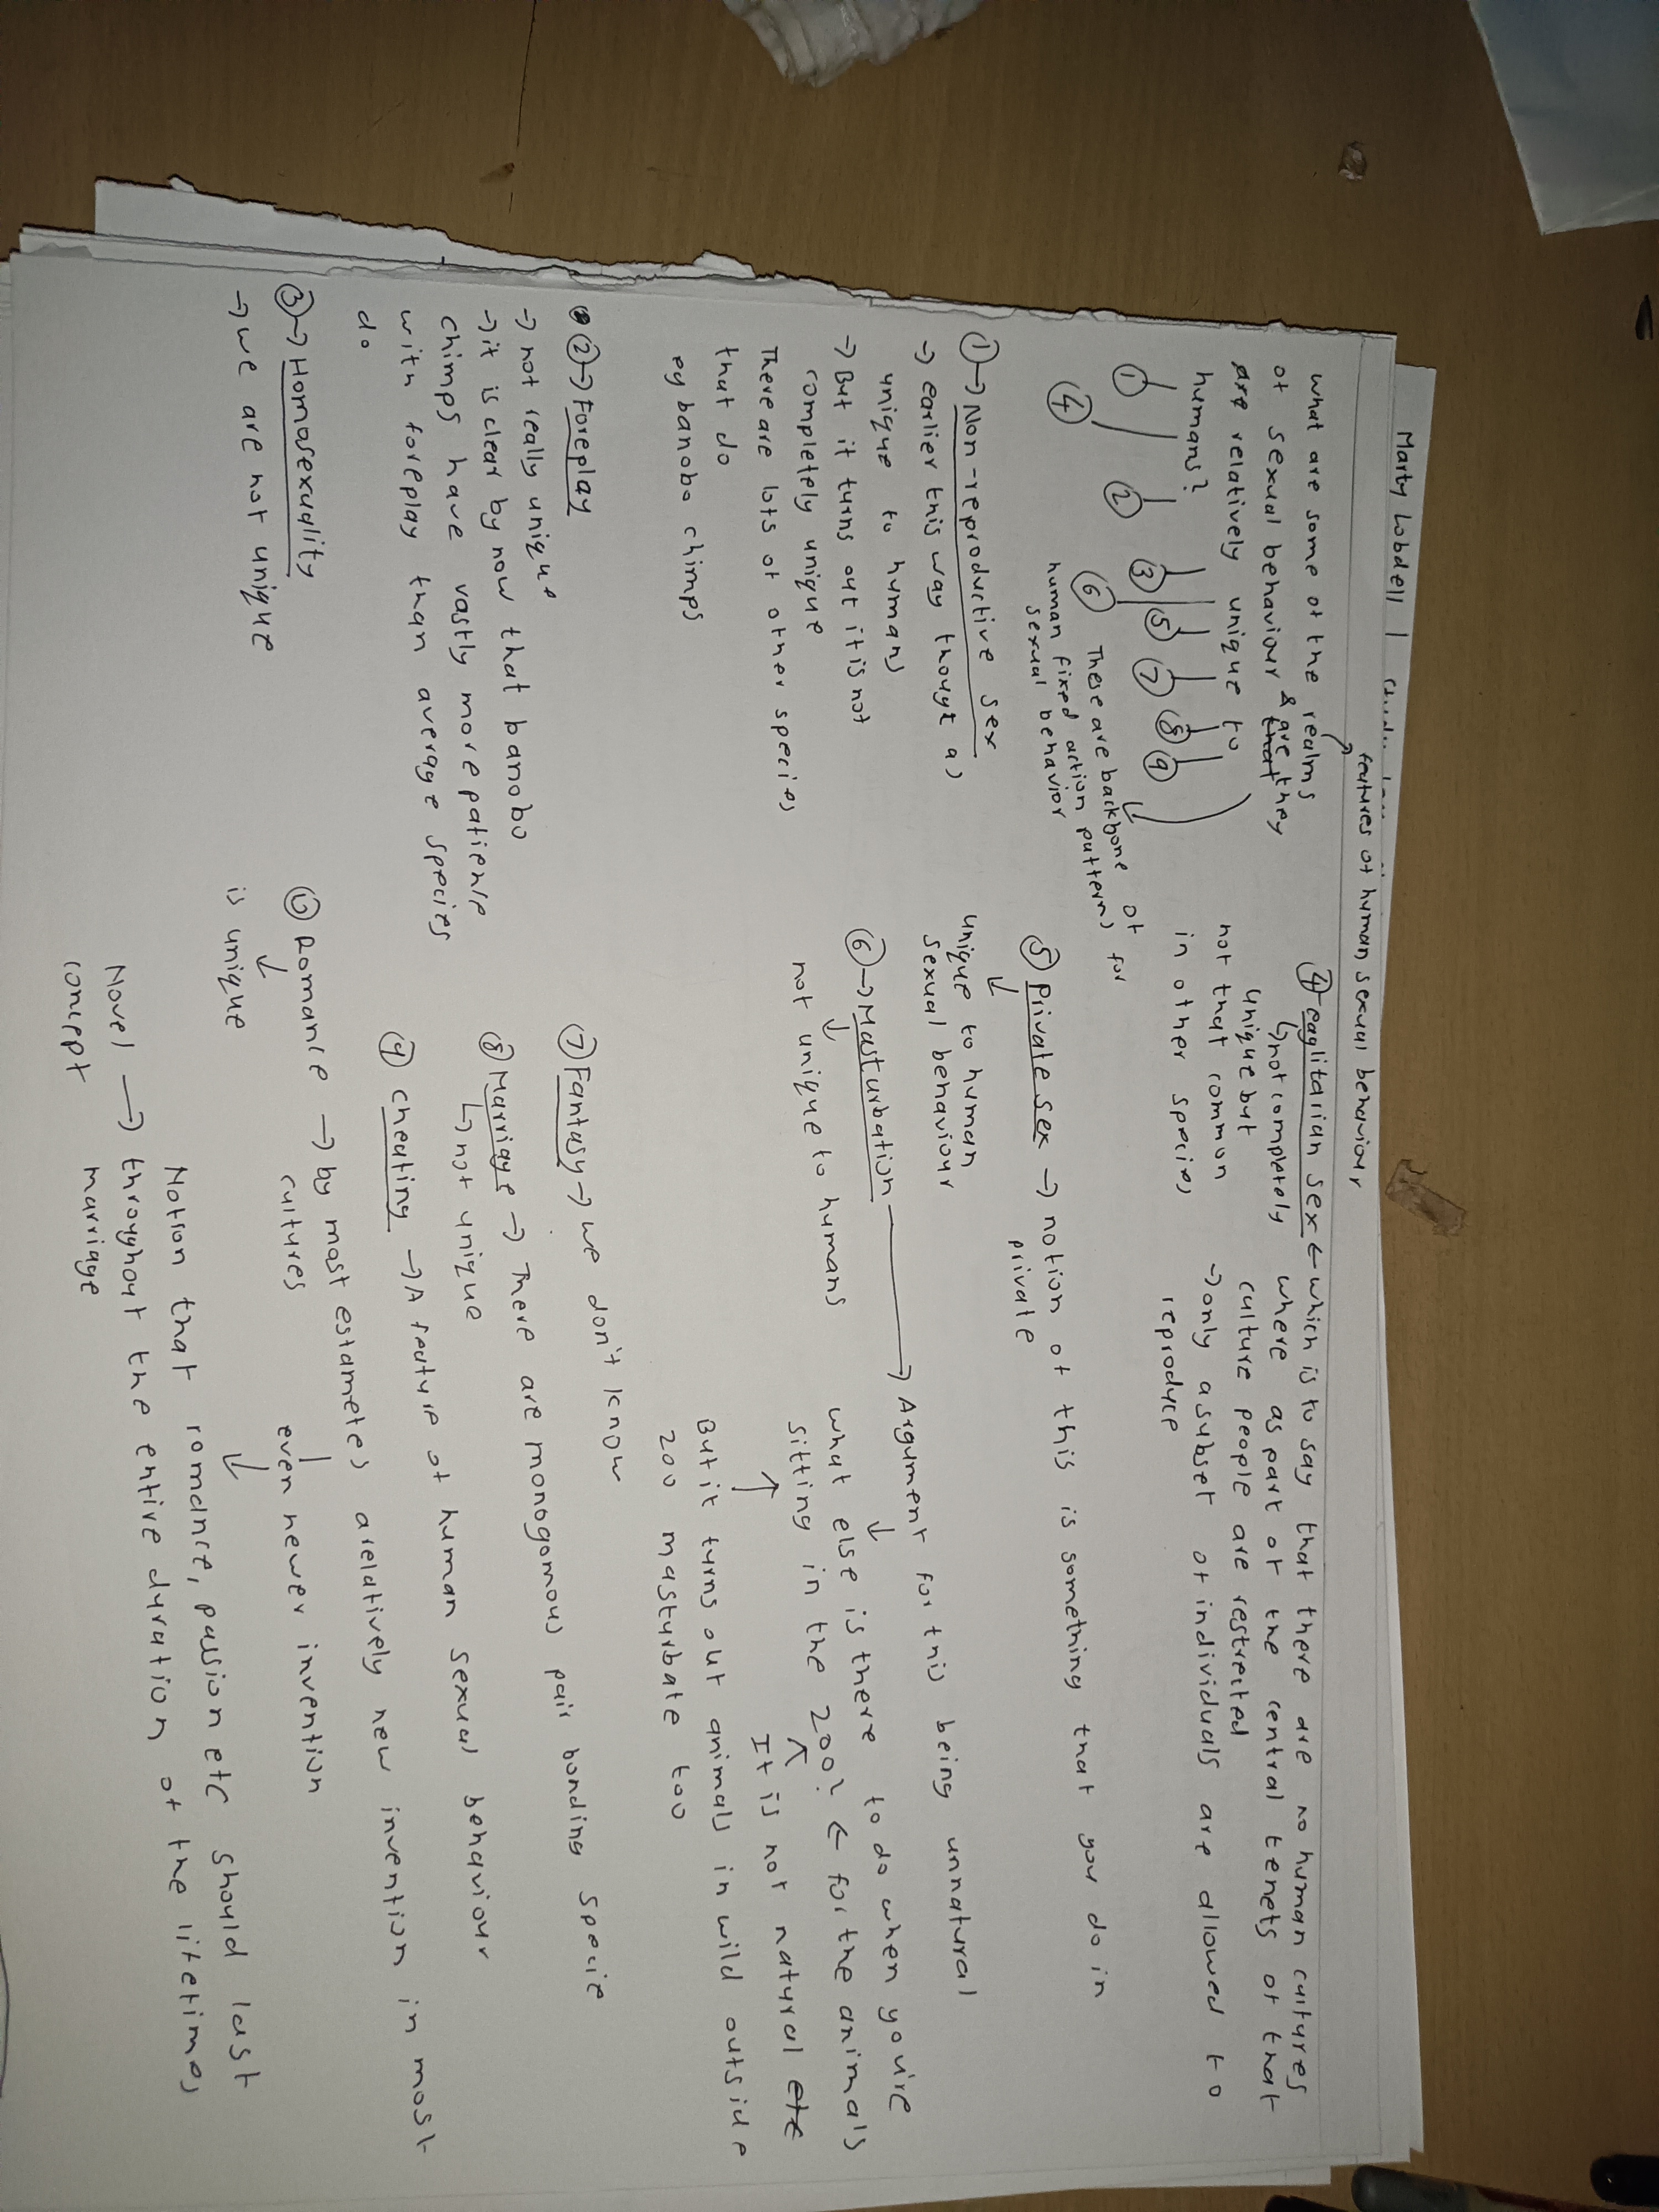 Marty Lobdell |
features of human sexual behaviour
what are some of the realms
of sexual behaviour & are they
are relatively unique to
humans?
① ② ③ ⑤ ⑦ ⑧ ⑨
④ ⑥ These are backbone of
human fixed action patterns for
sexual behavior
①→Non-reproductive sex
→ earlier this way thougt as
unique to humans
→ But it turns out it is not
completely unique
There are lots of other species
that do
eg banobo chimps
②→Foreplay
→ not really unique
→ it is clear by now that banobo
chimps have vastly more patience
with foreplay than average species
do
③→Homosexuality
→we are not unique
④ eaglitarian sex ← which is to say that there are no human cultures
↳not completely where as part of the central tenets of that
unique but culture people are restrected
not that common →only a subset of individuals are allowed to
in other species reproduce
⑤ Private sex → notion of this is something that you do in
private
↓
unique to human
sexual behaviour
⑥→Masturbation → Argument for this being unnatural
↓
not unique to humans
↓
what else is there to do when you're
sitting in the zoo? ← for the animals
↑ It is not natural etc
But it turns out animals in wild outside
zoo masturbate too
⑦ Fantasy → we don't know
⑧ Marriage → There are monogomous pair bonding specie
↳not unique
⑨ cheating → A feature of human sexual behaviour
⑩ Romance → by most estametes a relatively new invention in most
cultures
↓
is unique
even newer invention
↓
Notion that romance, passion etc should last
Novel → throughout the entire duration of the lifetimes
concept marriage